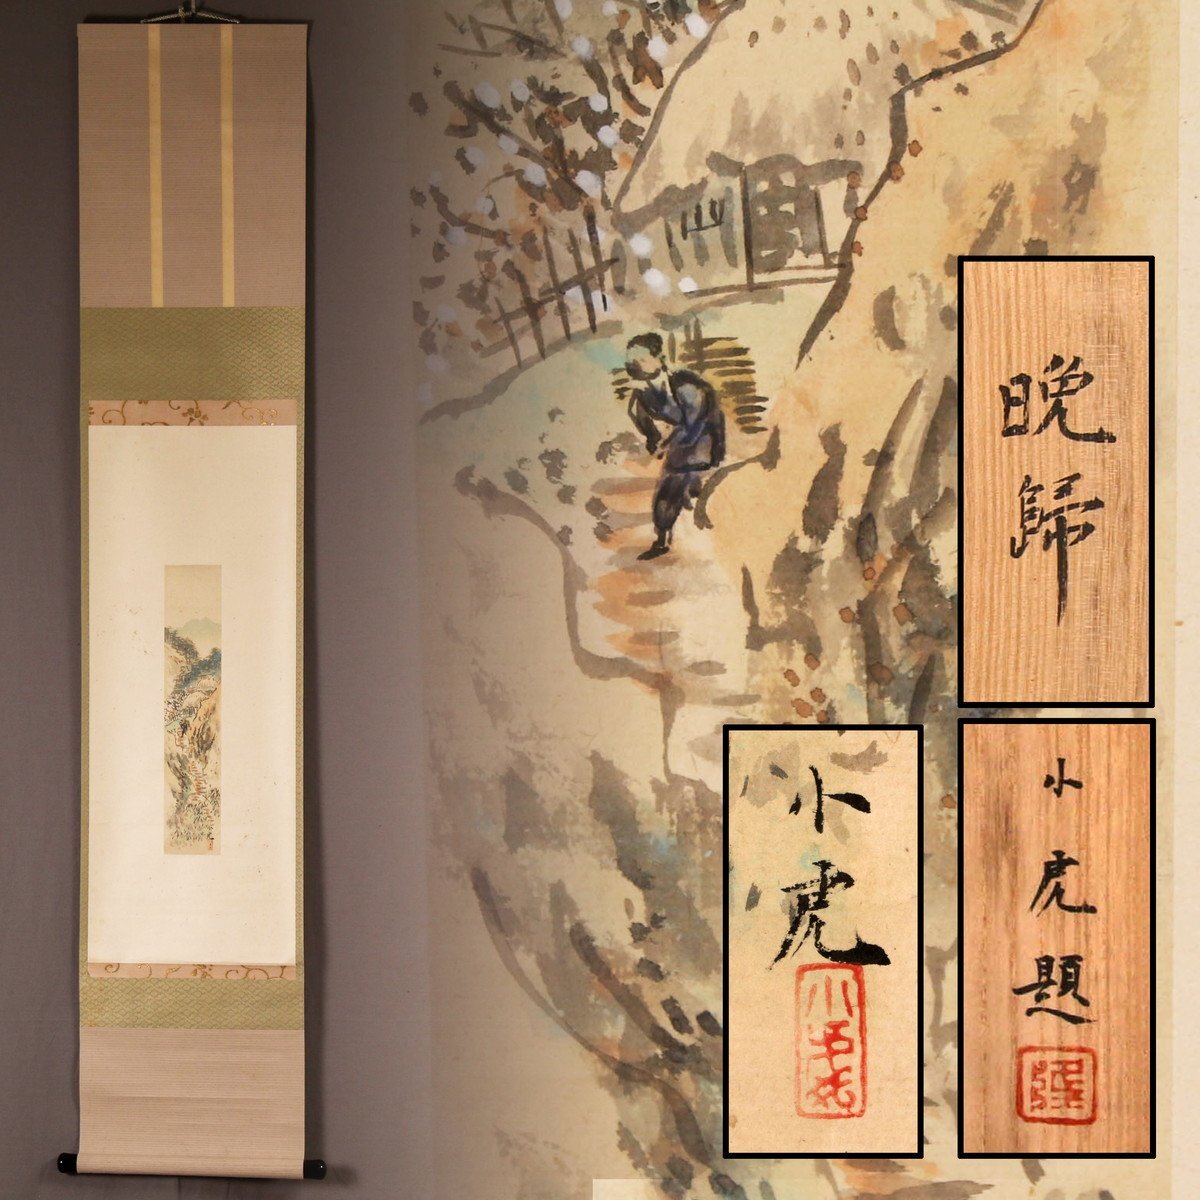 晩歸
小虎
小虎題